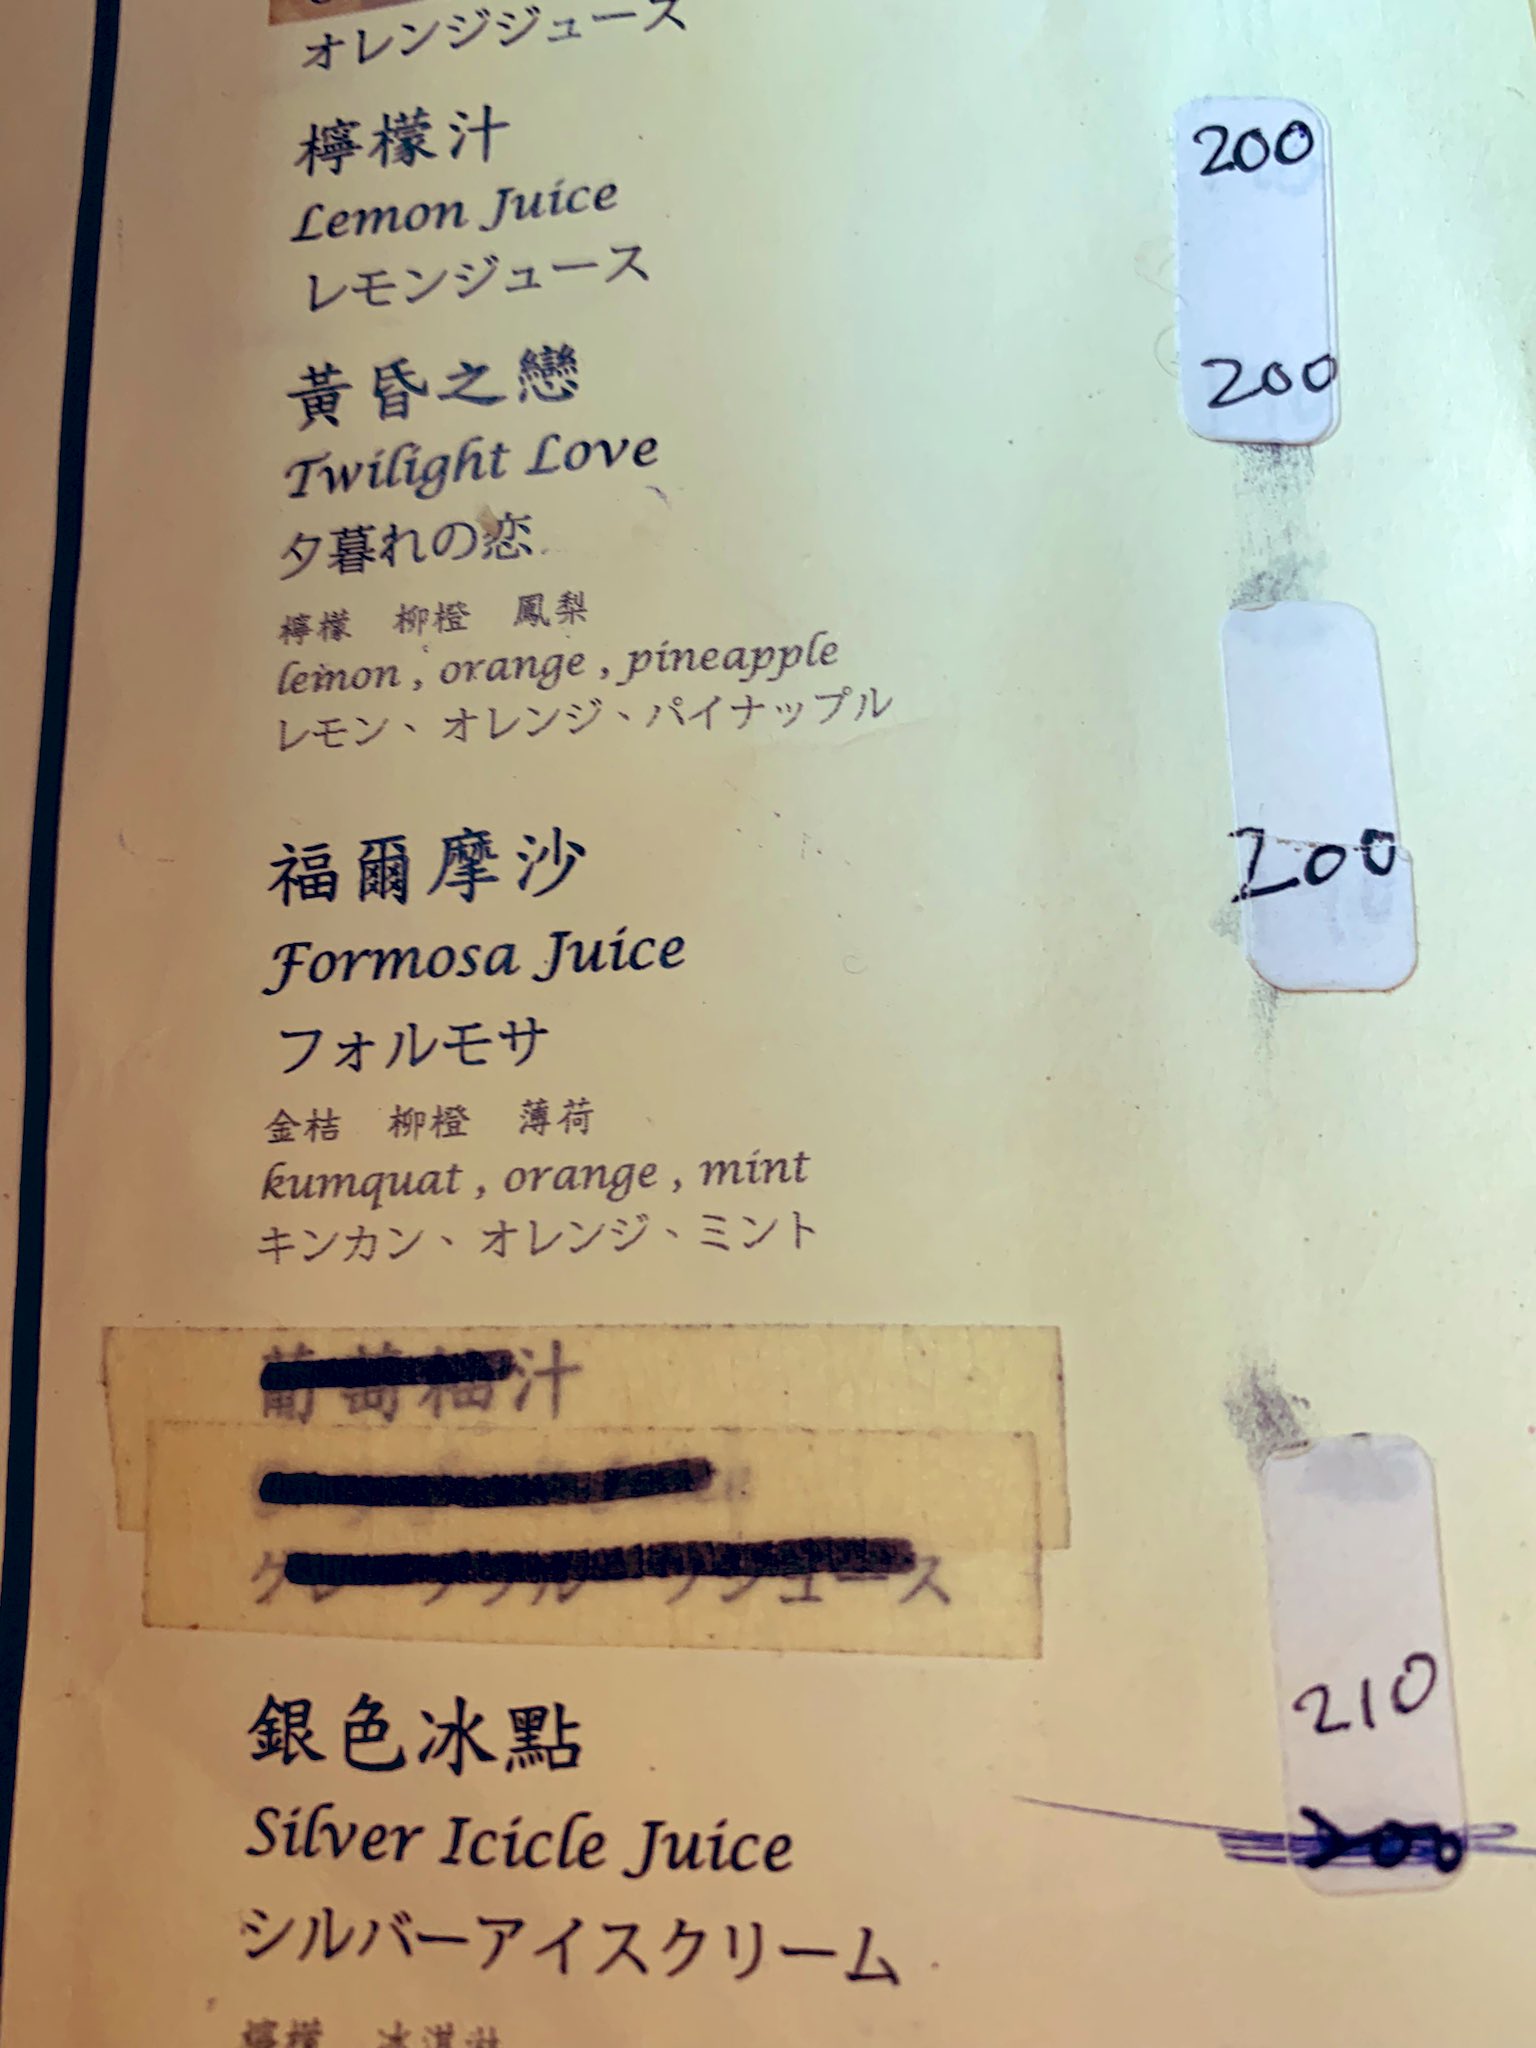 オレンジジュース
檸檬汁 200
Lemon Juice
レモンジュース
黃昏之戀 200
Twilight Love
夕暮れの恋
檸檬 柳橙 鳳梨
lemon , orange , pineapple
レモン、オレンジ、パイナップル
福爾摩沙 200
Formosa Juice
フォルモサ
金桔 柳橙 薄荷
kumquat , orange , mint
キンカン、オレンジ、ミント
葡萄柚汁
銀色冰點 210
Silver Icicle Juice 200
シルバーアイスクリーム
檸檬 冰淇淋